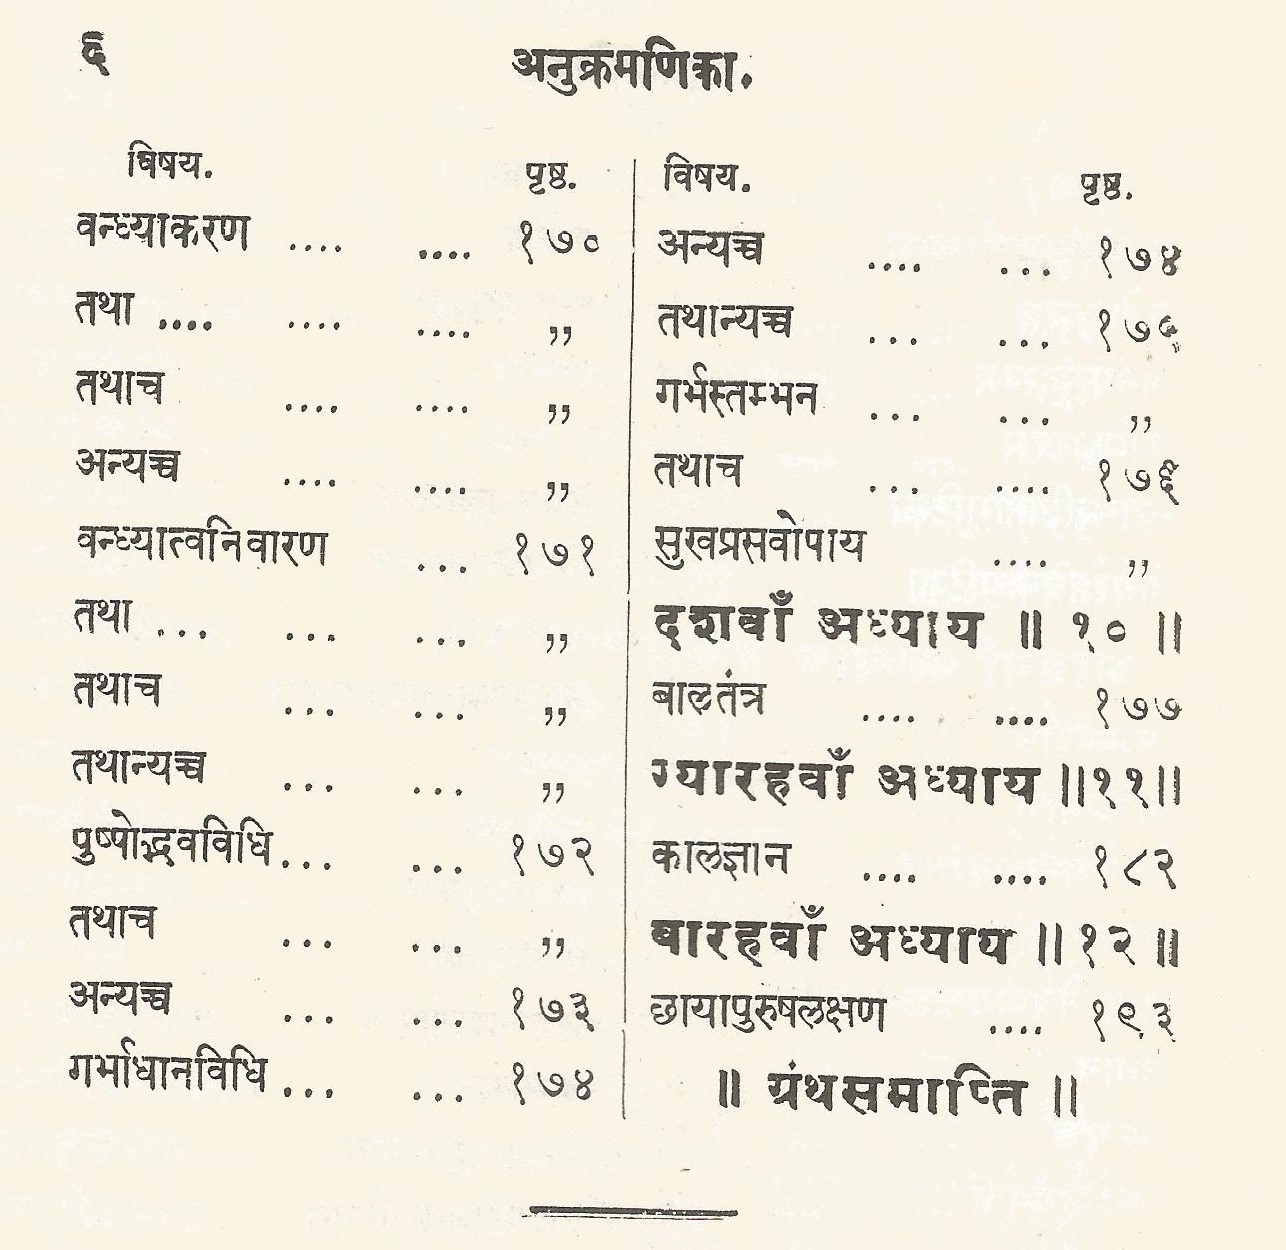 ६
अनुक्रमणिका.
विषय. पृष्ठ.
वन्ध्याकरण .... .... १७०
तथा .... .... .... ,,
तथाच .... .... ,,
अन्यच्च .... .... ,,
वन्ध्यात्वनिवारण ... १७१
तथा ... ... ... ,,
तथाच ... ... ,,
तथान्यच्च ... ... ,,
पुष्पोद्भवविधि... ... १७२
तथाच ... ... ,,
अन्यच्च ... ... १७३
गर्भाधानविधि ... ... १७४
विषय. पृष्ठ.
अन्यच्च .... ... १७४
तथान्यच्च ... ... १७५
गर्भस्तम्भन ... ... ,,
तथाच ... .... १७६
सुखप्रसवोपाय .... ,,
दशवाँ अध्याय ॥ १० ॥
बालतंत्र .... .... १७७
ग्यारहवाँ अध्याय ॥११॥
कालज्ञान .... .... १८२
बारहवाँ अध्याय ॥ १२ ॥
छायापुरुषलक्षण .... १९३
॥ ग्रंथसमाप्ति ॥